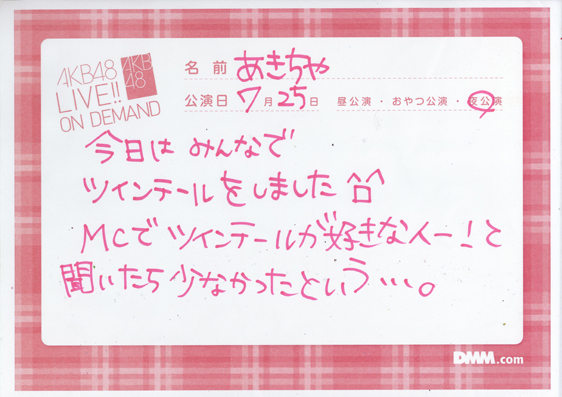 AKB48
LIVE!!
ON DEMAND
AKB
48
名前 あきちゃ
公演日 7月25日 昼公演・おやつ公演・夜公演
今日は みんなで
ツインテールをしました
MCで ツインテールが好きな人ー!と
聞いたら 少なかったという…。
DMM.com